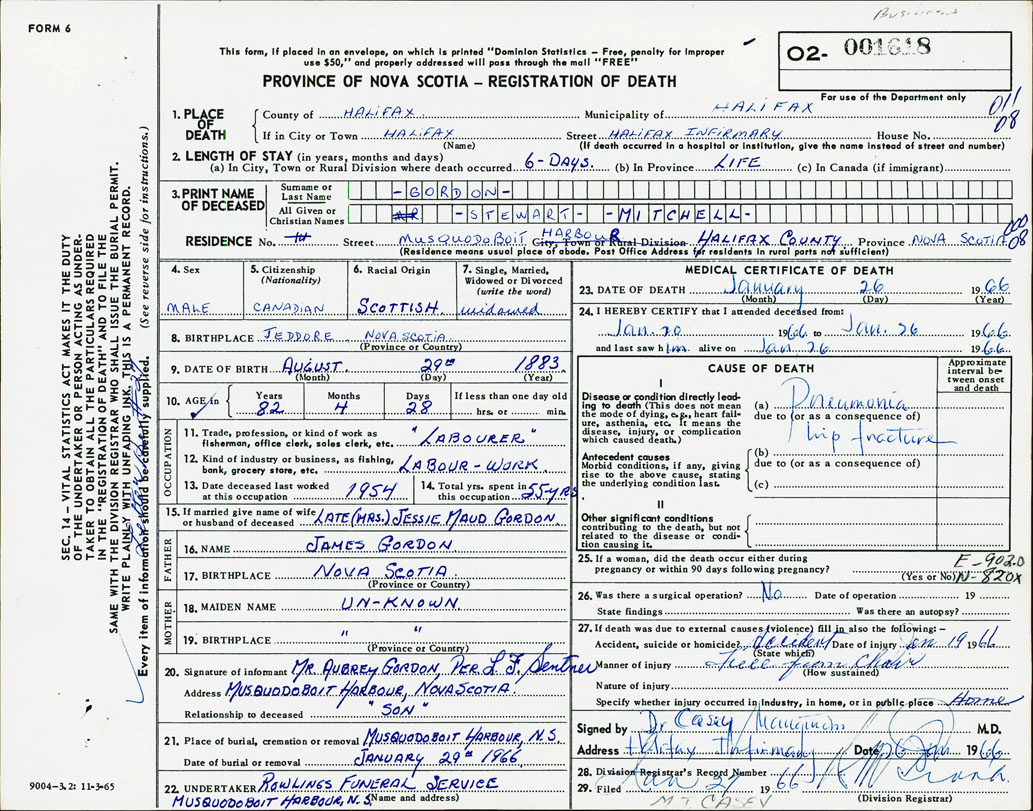 Business
FORM 6
This form, if placed in an envelope, on which is printed "Dominion Statistics – Free, penalty for improper
use $50," and properly addressed will pass through the mail "FREE"
PROVINCE OF NOVA SCOTIA – REGISTRATION OF DEATH
O2- 001618
For use of the Department only
011
08
1. PLACE OF DEATH
County of HALIFAX Municipality of HALIFAX
If in City or Town HALIFAX Street HALIFAX INFIRMARY House No.
(Name) (If death occurred in a hospital or institution, give the name instead of street and number)
2. LENGTH OF STAY (in years, months and days)
(a) In City, Town or Rural Division where death occurred 6-DAYS. (b) In Province LIFE (c) In Canada (if immigrant)
3. PRINT NAME OF DECEASED
Surname or Last Name -GORDON-
All Given or Christian Names -STEWART- -MITCHELL-
RESIDENCE No. Street MUSQUODOBOIT HARBOUR City, Town or Rural Division HALIFAX COUNTY Province NOVA SCOTIA
000
08
(Residence means usual place of abode. Post Office Address for residents in rural parts not sufficient)
4. Sex
MALE
5. Citizenship
(Nationality)
CANADIAN
6. Racial Origin
SCOTTISH.
7. Single, Married,
Widowed or Divorced
(write the word)
widowed
8. BIRTHPLACE JEDDORE NOVA SCOTIA
(Province or Country)
9. DATE OF BIRTH AUGUST 29th 1883
(Month) (Day) (Year)
10. AGE in Years 82 Months 4 Days 28 If less than one day old
hrs. or min.
OCCUPATION
11. Trade, profession, or kind of work as
fisherman, office clerk, sales clerk, etc. "LABOURER"
12. Kind of industry or business, as fishing,
bank, grocery store, etc. LABOUR-WORK.
13. Date deceased last worked
at this occupation 1954
14. Total yrs. spent in
this occupation 55-yrs
15. If married give name of wife
or husband of deceased LATE (MRS.) JESSIE MAUD GORDON.
FATHER
16. NAME JAMES GORDON.
17. BIRTHPLACE NOVA SCOTIA.
(Province or Country)
MOTHER
18. MAIDEN NAME UN-KNOWN.
19. BIRTHPLACE " "
(Province or Country)
20. Signature of informant MR. AUBREY GORDON, PER L. F. Sentner
Address MUSQUODOBOIT HARBOUR, NOVA SCOTIA.
Relationship to deceased "SON"
21. Place of burial, cremation or removal MUSQUODOBOIT HARBOUR, N.S.
Date of burial or removal JANUARY 29th 1966
22. UNDERTAKER ROWLINGS FUNERAL SERVICE
MUSQUODOBOIT HARBOUR, N.S. (Name and address)
MEDICAL CERTIFICATE OF DEATH
23. DATE OF DEATH January 26 1966
(Month) (Day) (Year)
24. I HEREBY CERTIFY that I attended deceased from:
Jan. 20 1966 to Jan. 26 1966
and last saw him alive on Jan. 26 1966
CAUSE OF DEATH
Approximate interval between onset and death
I
Disease or condition directly leading to death (This does not mean the mode of dying, e.g., heart failure, asthenia, etc. It means the disease, injury, or complication which caused death.)
(a) Pneumonia
due to (or as a consequence of)
hip fracture
Antecedent causes
Morbid conditions, if any, giving rise to the above cause, stating the underlying condition last.
(b)
due to (or as a consequence of)
(c)
II
Other significant conditions
contributing to the death, but not related to the disease or condition causing it.
25. If a woman, did the death occur either during
pregnancy or within 90 days following pregnancy?
(Yes or No)
E-902.0
N-820X
26. Was there a surgical operation? No Date of operation 19
State findings Was there an autopsy?
27. If death was due to external causes (violence) fill in also the following:–
Accident, suicide or homicide? Accident Date of injury Jan 19 1966
(State which)
Manner of injury Fell from Chair
(How sustained)
Nature of injury
Specify whether injury occurred in industry, in home, or in public place Home
Signed by Dr Casey M.D.
Address Halifax Infirmary Date 26 Jan 1966
28. Division Registrar's Record Number
29. Filed Jan 27 1966
(Division Registrar)
M.T. CASEY
SEC. 14 – VITAL STATISTICS ACT MAKES IT THE DUTY
OF THE UNDERTAKER OR PERSON ACTING AS UNDER-
TAKER TO OBTAIN ALL THE PARTICULARS REQUIRED
IN THE "REGISTRATION OF DEATH" AND TO FILE THE
SAME WITH THE DIVISION REGISTRAR WHO SHALL ISSUE THE BURIAL PERMIT.
WRITE PLAINLY WITH UNFADING INK. THIS IS A PERMANENT RECORD.
Every item of information should be carefully supplied. (See reverse side for instructions.)
9004-3.2: 11-3-65